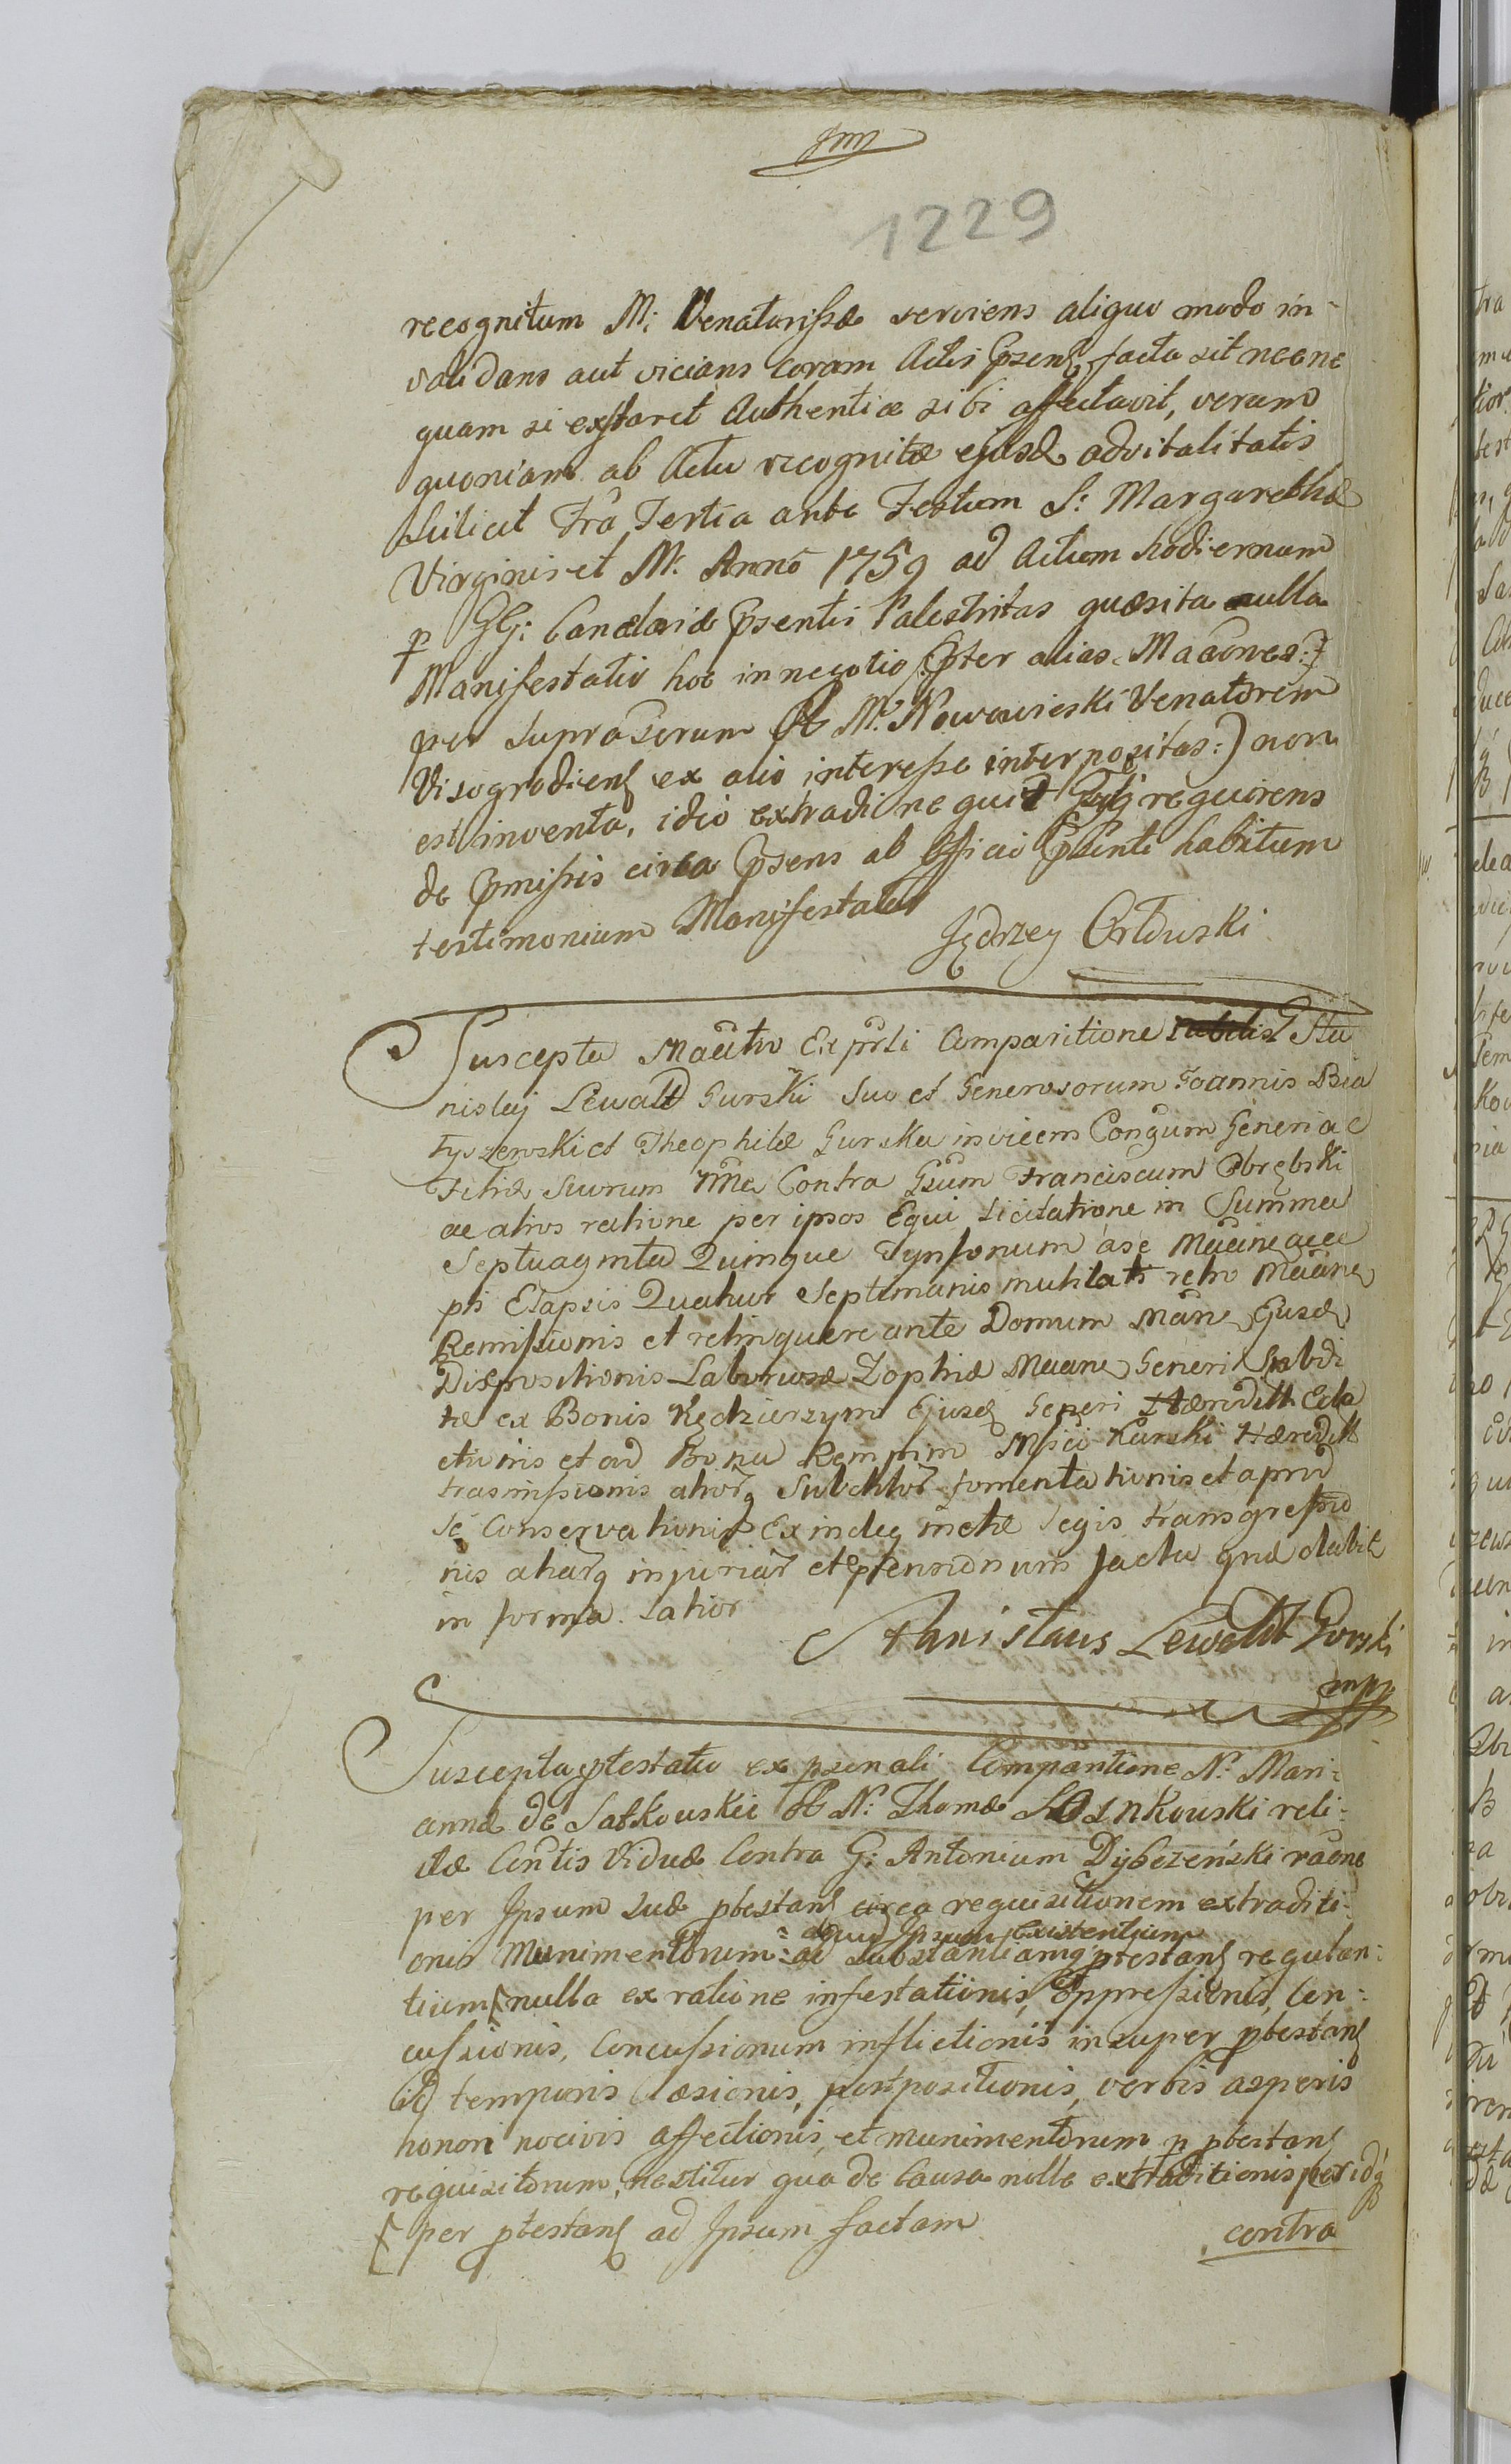 1229
recognitum M: Venatorissæ serviens aliquo modo in-
validans aut vicians coram Actis Psens facta sit necne
quam si extaret Authentice sibi affectavit, verum
quoniam ab Actu recognitæ ejusd advitalitatis
Scilicet Fra Tertia ante Festum S: Margarethæ
Virginis et M. Anno 1759 ad Actum hodiernum
p GG: Cancelariæ Psentis Palestritas quæsita nulla
Manifestatio hoc in negotio /: Pter alias Maaones :/
per Suprascrum M: Nowowieski Venatorem
Visogrodiens ex alio interesse interpositas:) non
est inventa, ideo extradi nequit requirens
de Pmissis circa Psens ab Officio Psenti habitum
testimonium Manifestatur
Jędrzey Ołduski
Suscepta Maatio Ex prli Comparitione Sta
nislaj Lewald Gurski Suo et Generosorum Joannis Bia
łyszewski et Theophilæ Gurska invicem Congum Generi ac
Filiæ Suorum nne Contra Gsum Franciscum Obrębski
ac alios ratione per ipsos Equi licitatione in Summa
Septuaginta Quinque Tynfonum
pti Elapsis Quatuor Septimanis mutilati retro
Remissionis et relinquere ante Domum Man Ejusd
Dispositionis Laboriosæ Zophiæ Generi Subdi
tæ ex Bonis Kędzierzyn Ejusd Generi Hæreditt
ctionis et ad Bona Rempin Msici Karski Hæreditt
trasmissionis aliorq Subditor fomentationis et apud
Se Conservationis Ex indeq metæ Legis transgressio
nis aliarq injuriar et Ptensionum facta qnæ dabit
in forma latior
Stanislaus Lewald Gorski
mpp
Suscepta Ptestatio ex psonali Comparitione N: Mari-
annæ de Satkouskie N: Thomæ Sosnkouski reli-
ctæ Contis Viduæ Contra G: Antonium Dybczeński raone
per Ipsum Suæ ptestans circa requisitionem extraditi-
apud Ipsum Existentium
onis Munimentorum: ad Substantiamq ptestans regulan-
tium nulla ex ratione infestationis, Oppressionis, Con-
cussionis, Concussionum inflictionis insuper ptestans
id temporis Læsionis, postpositionis, verbis asperis
honori nocivis affectionis, et munimentorum p ptestans
requisitorum, nescitur qua de Causa nulle extraditionis per idq
per ptestans ad Ipsum factam
contra